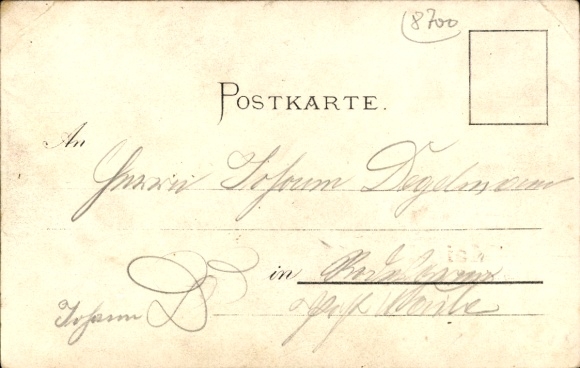 8700
POSTKARTE.
An
Herrn Johann Degelmann
in
Post
Johann D